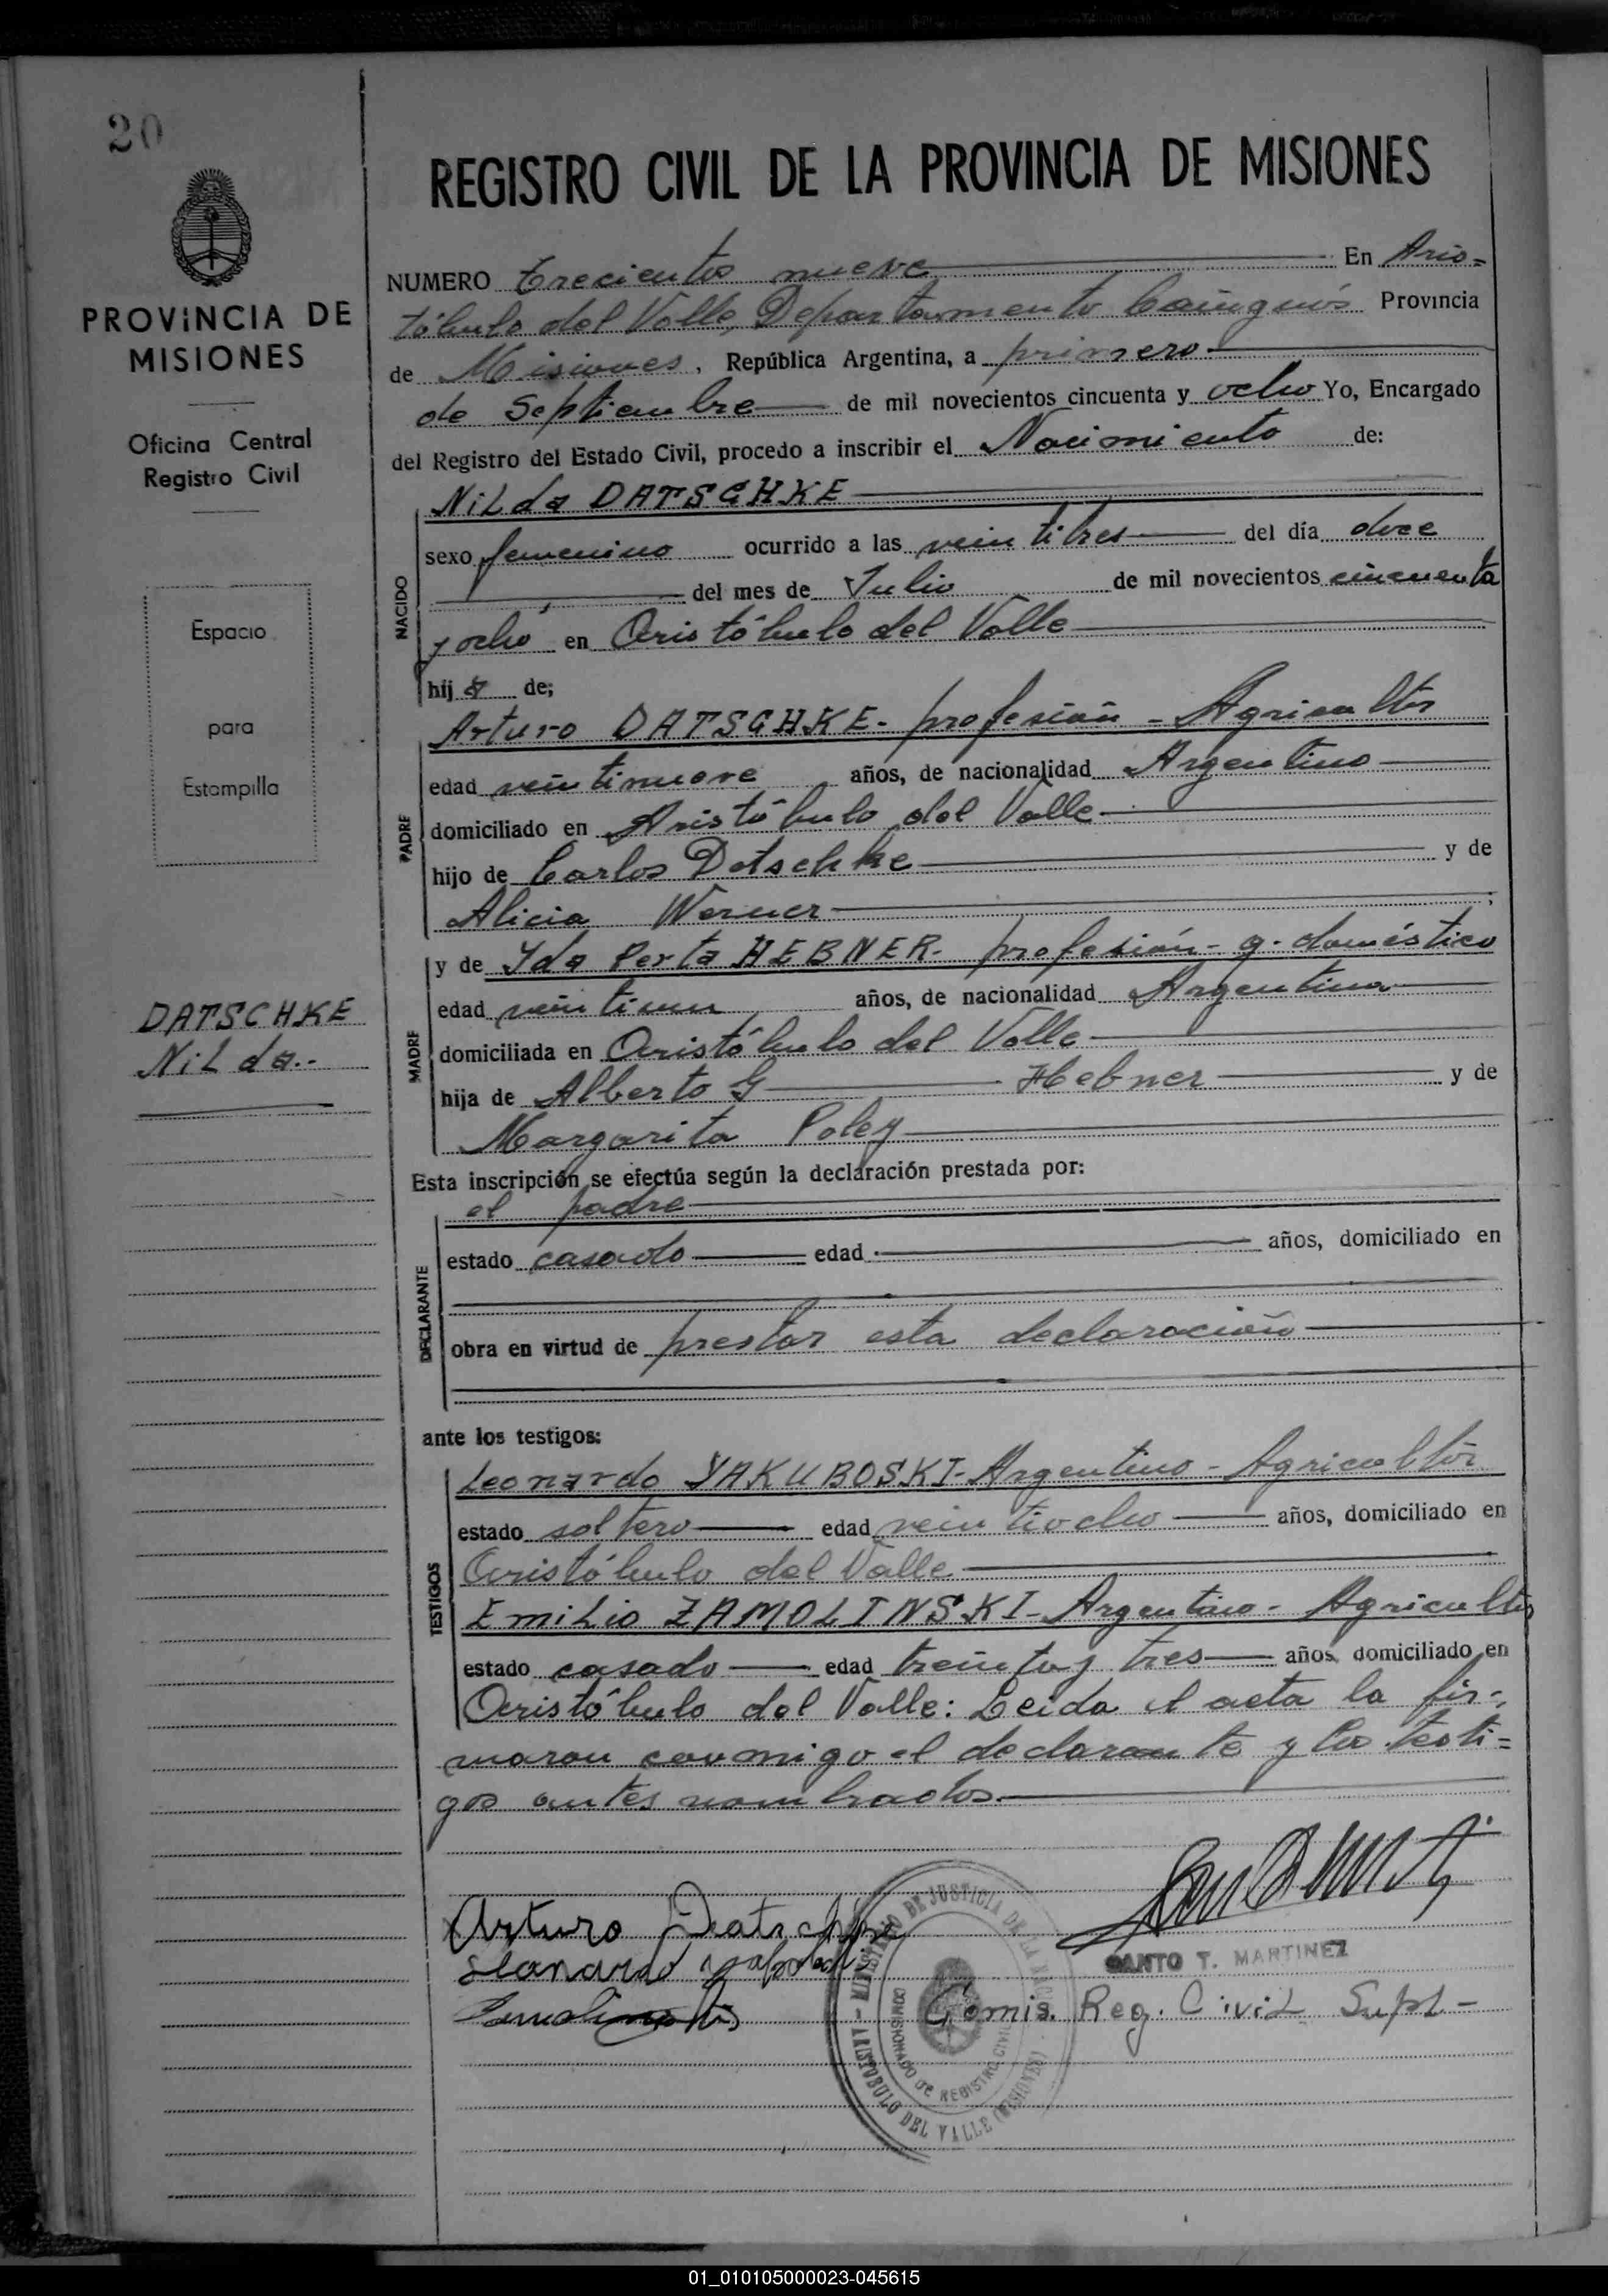 20
REGISTRO CIVIL DE LA PROVINCIA DE MISIONES
PROVINCIA DE
MISIONES
Oficina Central
Registro Civil
Espacio
para
Estampilla
DATSCHKE
Nilda.-
NUMERO Trecientos nueve En Aris=
tóbulo del Valle, Departamento Cainguás Provincia
de Misiones, República Argentina, a primero
de Septiembre de mil novecientos cincuenta y ocho Yo, Encargado
del Registro del Estado Civil, procedo a inscribir el Nacimiento de:
NACIDO
Nilda DATSCHKE
sexo femenino ocurrido a las veintitres del día doce
del mes de Julio de mil novecientos cincuenta
y ocho en Aristóbulo del Valle
hij a de;
PADRE
Arturo DATSCHKE- profesión - Agricultor
edad veintinueve años, de nacionalidad Argentino
domiciliado en Aristóbulo del Valle
hijo de Carlos Datschke y de
Alicia Werner ;
MADRE
y de Yda Berta HEBNER- profesión- q. doméstico
edad veintiun años, de nacionalidad Argentina
domiciliada en Aristóbulo del Valle
hija de Alberto G Hebner y de
Margarita Poley
Esta inscripción se efectúa según la declaración prestada por:
DECLARANTE
el padre
estado casado edad años, domiciliado en
obra en virtud de prestar esta declaración
ante los testigos:
TESTIGOS
Leonardo YAKUBOSKI-Argentino - Agricultor
estado soltero edad veintiocho años, domiciliado en
Aristóbulo del Valle
Emilio ZAMOLINSKI-Argentino- Agricultor
estado casado edad treinta y tres años, domiciliado en
Aristóbulo del Valle: Leida el acta la fir-
maron conmigo el declarante y los testi=
gos antes nombrados.
Arturo Datschke
SANTO T. MARTINEZ
Comis. Reg. Civil Supl-
MINISTERIO DE JUSTICIA DE LA NACION - ARISTOBULO DEL VALLE (MISIONES)
COMISIONADO DE REGISTRO CIVIL
01_010105000023-045615